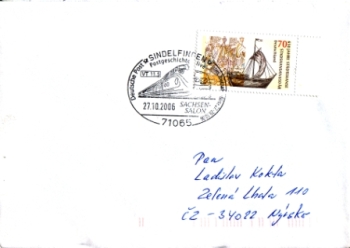 SINDELFINGEN
Deutsche Post
Postgeschichte
VT 11.5
27.10.2006
SACHSEN-
SALON
71065
70
Pan
Ladislav Kokta
Zelená Lhota 110
CZ-34022 Nýrsko